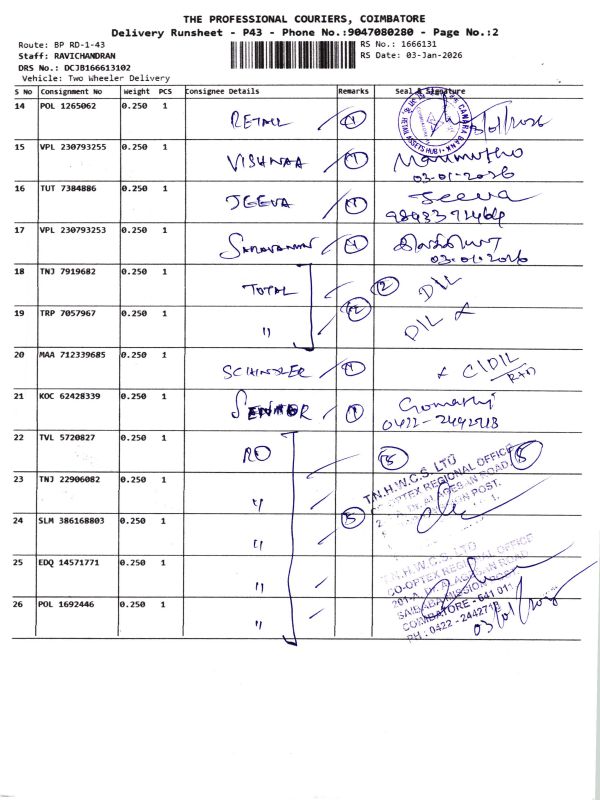 THE PROFESSIONAL COURIERS, COIMBATORE
Delivery Runsheet - P43 - Phone No.:9047080280 - Page No.:2
Route: BP RD-1-43
RS No.: 1666131
Staff: RAVICHANDRAN
RS Date: 03-Jan-2026
DRS No.: DCJB166613102
Vehicle: Two Wheeler Delivery
S No Consignment No Weight PCS Consignee Details Remarks Seal & Signature
14 POL 1265062 0.250 1 RETAIL 1
CANARA BANK
15 VPL 230793255 0.250 1 VISHNAA 1 Marimuthu
03-01-2026
16 TUT 7384886 0.250 1 JEEVA 1 Jeeva
17 VPL 230793253 0.250 1 SARAVANAN 1
03-01-2026
18 TNJ 7919682 0.250 1 TOTAL 2 DIL
19 TRP 7057967 0.250 1 " 2 DIL
20 MAA 712339685 0.250 1 SCHINDLER 1 C/DIL
21 KOC 62428339 0.250 1 1 Gomathi
22 TVL 5720827 0.250 1 RO 5 5
T.N.H.W.C.S. LTD
CO-OPTEX REGIONAL OFFICE
23 TNJ 22906082 0.250 1 "
24 SLM 386168803 0.250 1 " 5
25 EDQ 14571771 0.250 1 "
T.N.H.W.C.S. LTD
CO-OPTEX REGIONAL OFFICE
201-A, Dr. ALAGESAN ROAD
SAIBABA MISSION POST
COIMBATORE - 641 011
26 POL 1692446 0.250 1 "